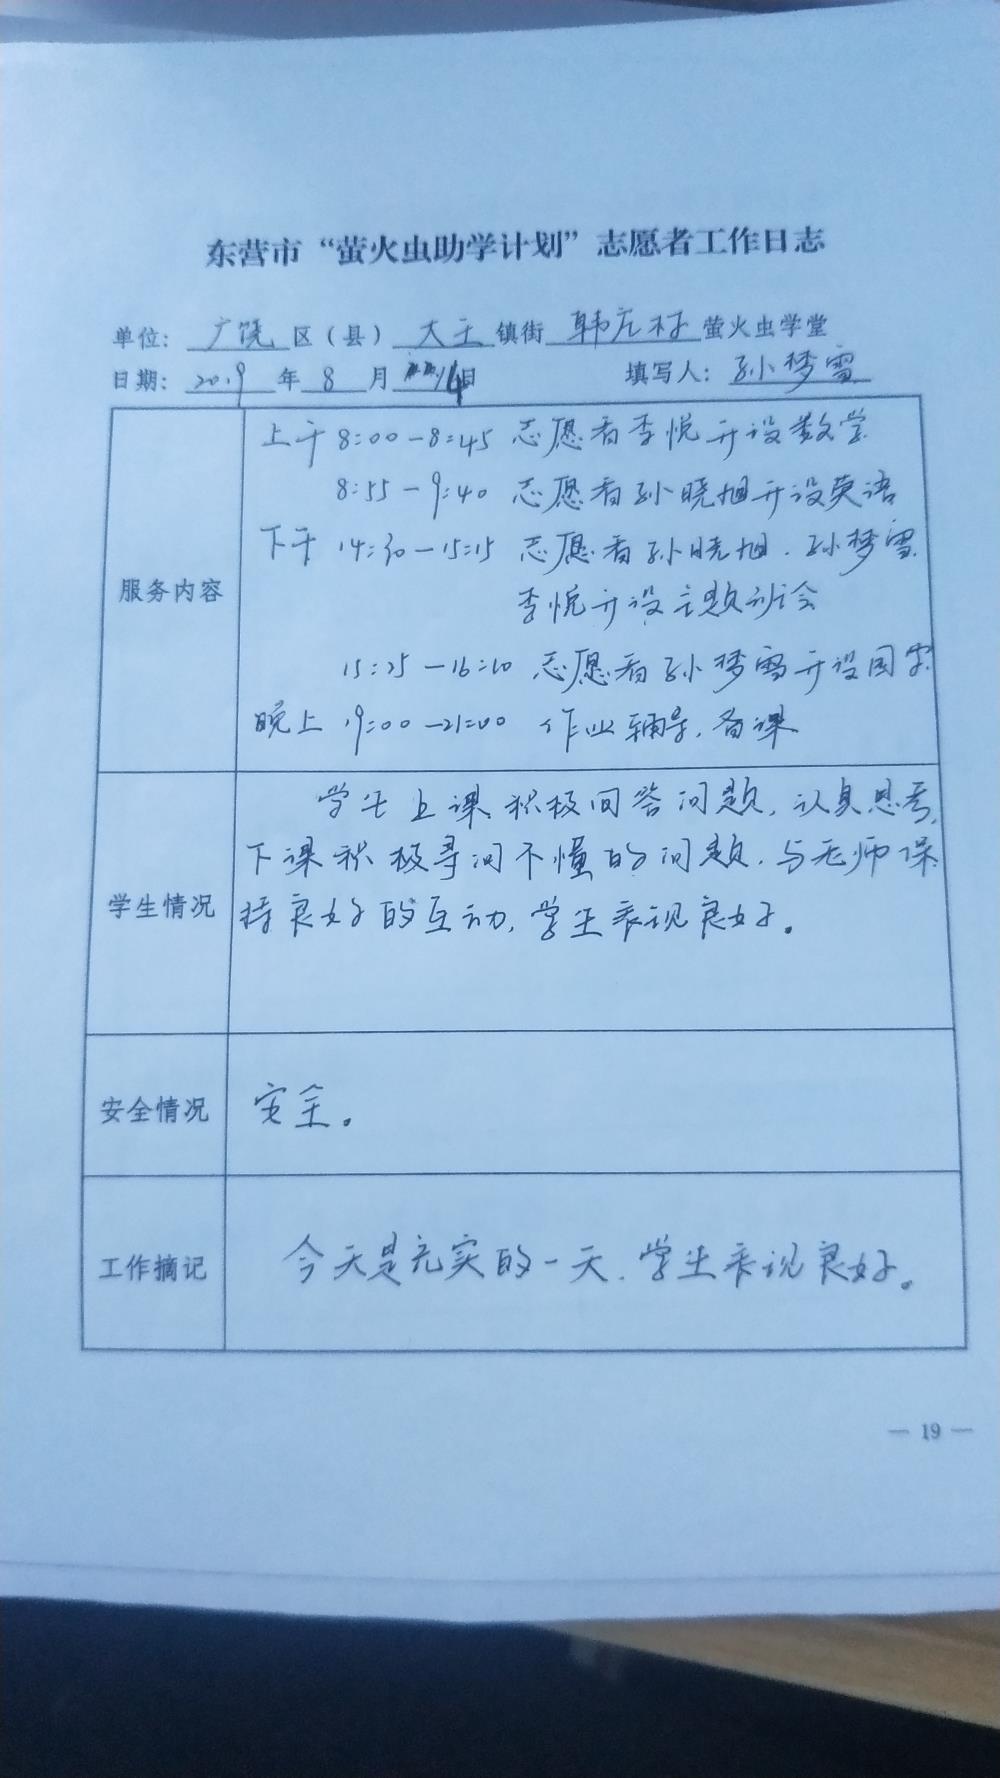 东营市“萤火虫助学计划”志愿者工作日志
单位：广饶区（县）大王镇街韩庄村萤火虫学堂
日期：2019年8月14日 填写人：孙梦雪
服务内容
上午 8:00-8:45 志愿者李悦开设数学
8:55-9:40 志愿者孙晓旭开设英语
下午 14:30-15:15 志愿者孙晓旭.孙梦雪
李悦开设主题班会
15:25-16:10 志愿者孙梦雪开设国学
晚上 19:00-21:00 作业辅导,备课
学生情况
学生上课积极回答问题,认真思考,
下课积极寻问不懂的问题,与老师保
持良好的互动,学生表现良好。
安全情况
安全。
工作摘记
今天是充实的一天,学生表现良好。
— 19 —